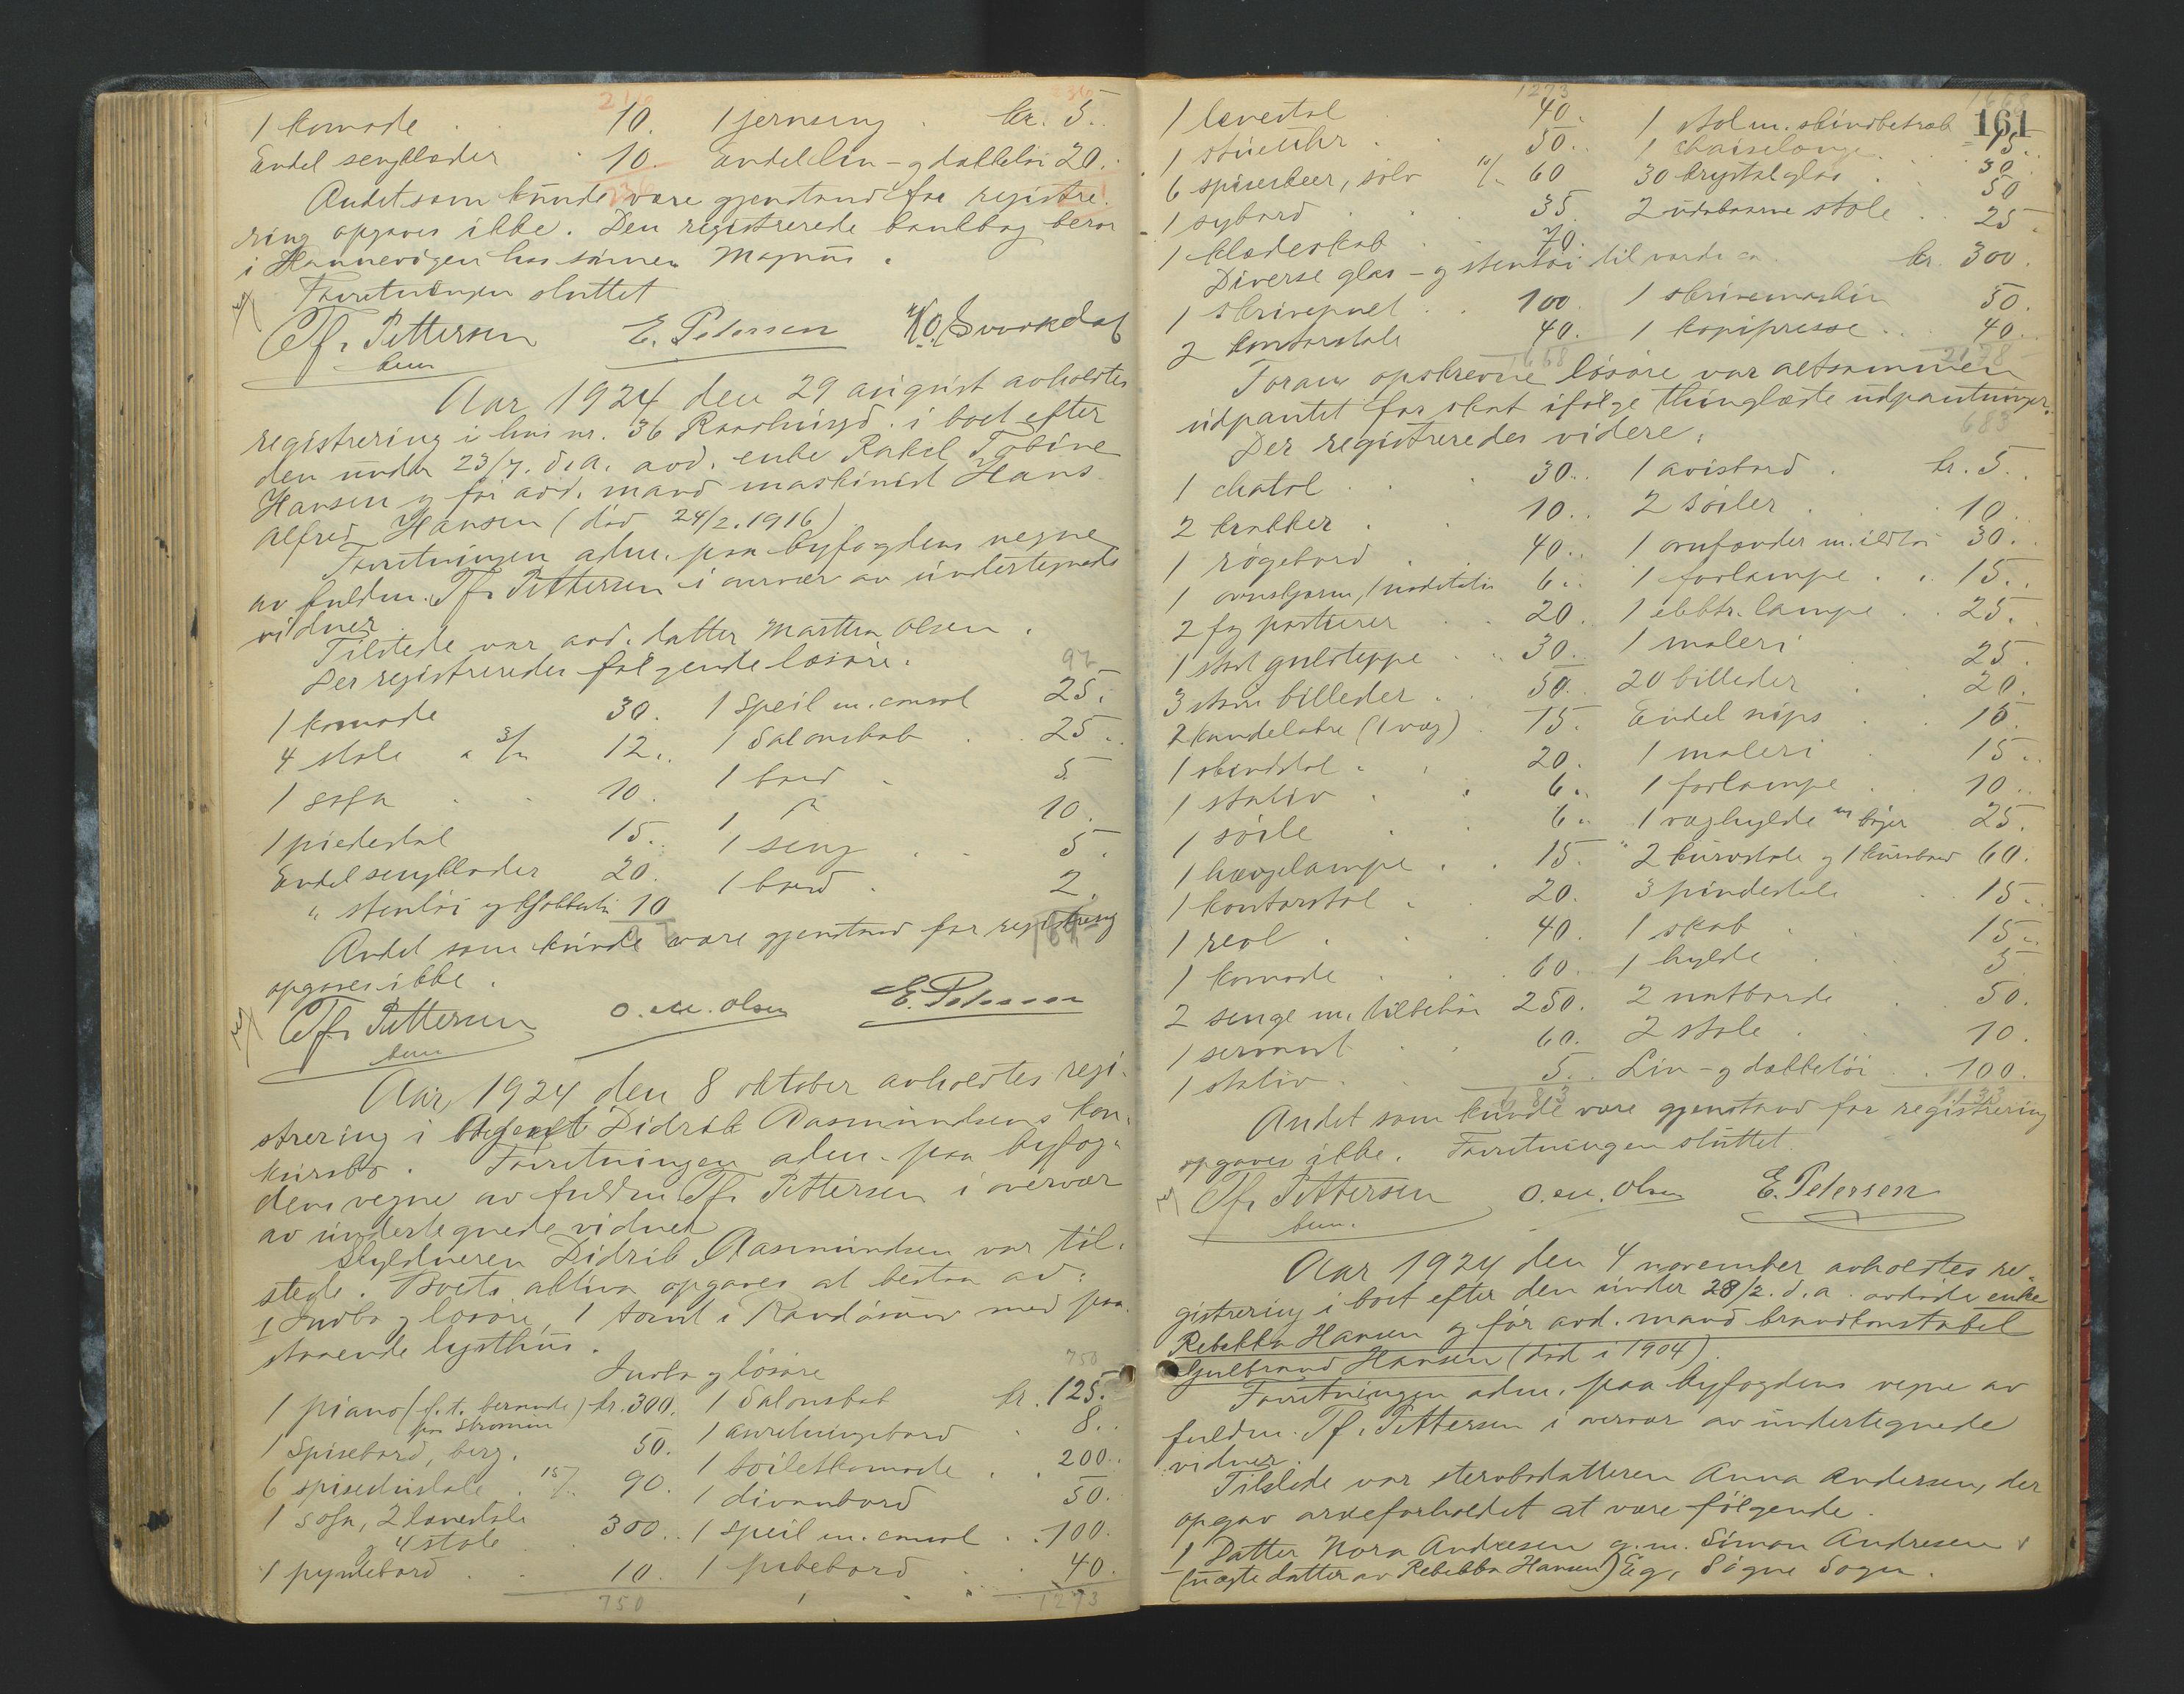 1 komode 10. 1 jernseng kr. 5.
Endel sengklæder 10. Endel lin- og dækketøi 20.
Andet som kunde være gjenstand for registre-
ring opgaves ikke. Den registrerede bankbog beror
i Hannevigen hos sønnen Magnus.
Forretningen sluttet
Tf. Pettersen E. Petersen
bem
Aar 1924 den 29 august avholdtes
registrering i hus nr. 36 Raadhusgd. i boet efter
den under 23/7. d.a. avd. enke Rakel Tobine
Hansen og før avd. mand maskinist Hans
Alfred Hansen (død 24/2. 1916)
Forretningen adm. paa byfogdens vegne
av fuldm. Tf. Pettersen i overvær av undertegnede
vidner
Tilstede var avd. datter Martha Olsen.
Der registreredes følgende løsøre. 97
1 komode 30. 1 Speil m. consol 25.
4 stole a 3/- 12.. 1 Salonskab 25..
1 sofa 10. 1 bord 5
1 piedestal 15.. 1 " 10.
Endel sengklæder 20. 1 seng 5.
" stentøi og kjøkkentøi 10 1 bord 2.
Andet som kunde være gjenstand for registrering
opgaves ikke.
Tf. Pettersen O. M. Olsen E. Petersen
bem
Aar 1924 den 8 oktober avholdtes regi-
strering i Agent Didrik Aasmundsens kon-
kursbo. Forretningen adm. paa byfog-
dens vegne av fuldm Tf. Pettersen i overvær
av undertegnede vidner
Skyldneren Didrik Aasmundsen var til-
stede. Boets aktiva opgaves at bestaa av:
1 Indbo og løsøre, 1 tomt i Randøsund med paa-
staaende lysthus.
Indbo og løsøre 750
1 piano (f.t. beroende) kr. 300. 1 Salonskab kr. 125.
paa Strømmen
1 Spisebord, berg. 50. 1 anretningsbord 8..
6 spisestuestole 15/- 90. 1 toiletkomode 200..
1 sofa, 2 lænestole 1 divanbord 50.
og 4 stole 300.. 1 speil m. consol 100.
1 pyntebord 10. 1 pibebord 40.
750 1273
1273 1668
161
1 lænestol 40. 1 stol m. skindbetræk 15..
1 stueuhr 50.. 1 chaiselonge 30.
6 spiseskeer, sølv 10/- 60 30 krystalglas 50
1 sybord 35. 2 udskaarne stole 25.
1 klædeskab 70.
Diverse glas- og stentøi til værdi ca. kr. 300.
1 skrivepult 100. 1 skrivemaskin 50.
2 kontorstole 40. 1 kopipresse 40.
1668 2178
Foran opskrevne løsøre var altsammen
utpantet for skat ifølge thinglæste utpantninger.
Der registreredes videre: 683
1 chatol 30.. 1 avisbord kr. 5.
2 krakker 10.. 2 søiler 10.
1 røgebord 40.. 1 ovnfonder m. ildtøi 30..
1 ovnskjærm, 1 nodestativ 6.. 1 forlampe 15..
2 fag portierer 20. 1 elektr. lampe 25..
1 stort gulvteppe 30.. 1 maleri 25.
3 store billeder 50.. 20 billeder 20.
2 kandelabre (1 væg) 15. Endel nips 15.
1 skindstol 20. 1 maleri 15..
1 stativ 6.. 1 forlampe 10..
1 søile 6.. 1 væghylde m bøger 25.
1 hængelampe 15. 2 kurvstole og 1 kurvbord 60.
1 kontorstol 20. 3 pindestole 15..
1 reol 40. 1 skab 15..
1 komode 60. 1 hylde 5
2 senge m. tilbehør 250. 2 natborde 50.
1 servant 60. 2 stole 10.
1 stativ 5.. Lin- og dækketøi 100.
683 1133
Andet som kunde være gjenstand for registrering
opgaves ikke. Forretningen sluttet.
Tf. Pettersen O. M. Olsen E. Petersen
bem.
Aar 1924 den 4 november avholdtes re-
gistrering i boet efter den under 28/2. d.a. avdøde enke
Rebekka Hansen og før avd. mand brandkonstabel
Gulbrand Hansen (død i 1904).
Forretningen adm. paa byfogdens vegne av
fuldm. Tf. Pettersen i overvær av undertegnede
vidner.
Tilstede var stervbodatteren Anna Andersen, der
opgav arveforholdet at være følgende.
1 Datter Nora Andresen g.m. Simon Andresen
(uægte datter av Rebekka Hansen) Eg, Søgne Sogn.